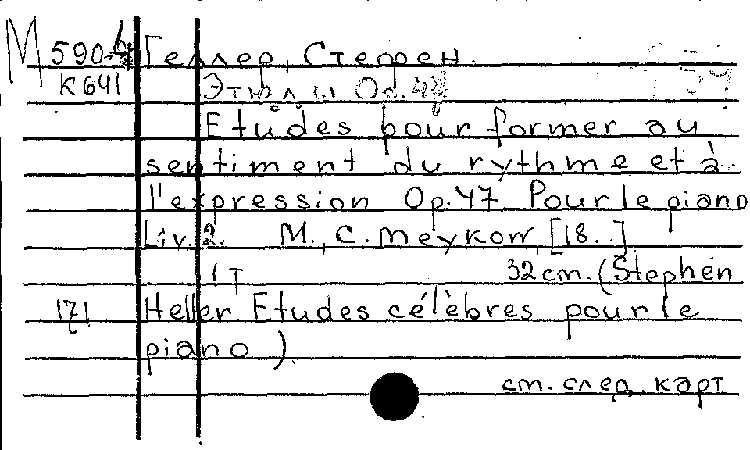 М 590-4 Геллер, Стефен.
К641 Этюды Ор.47
Etudes pour former au
sentiment du rythme et à
l'expression Op.47 Pour le piano
Liv. 2. M., C. Meykow, [18..]
1 т 32 cm. (Stephen
171 Heller Etudes célèbres pour le
piano).
см. след. карт